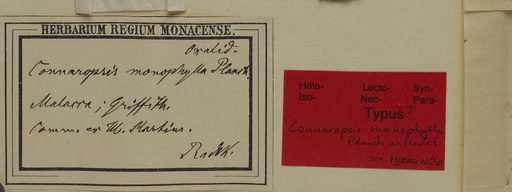 HERBARIUM REGIUM MONACENSE.
Oxalid.
Connaropsis monophylla Planch.
Malacca; Griffith.
Comm. ex Hb. Martius.
Radlk.
Holo- Lecto- Syn-
Iso- Neo- Para-
Typus?
Connaropsis monophylla
Planch. ex Hook.f.